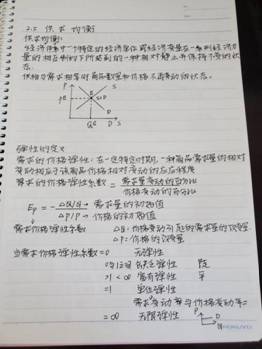 2.3 供求均衡
供求均衡:
经济体中一个特定的经济单位或经济变量在一系列经济力
量的相互制约下所达到的一种相对静止并保持不变的状态。
供给与需求相等时商品数量和价格不再变动的状态。
P
S
PE
E
QE
D
S
弹性的定义
需求的价格弹性:在一定时期,一种商品需求量的相对
变动相应于该商品价格相对变动的反应程度
需求的价格弹性系数 = 需求量变动的百分比
价格变动的百分比
Ep = - ΔQ/Q → 需求量的相对值
ΔP/P → 价格的相对值
需求价格弹性系数 ΔQ: 价格变动引起的需求量的改变量
ΔP: 价格的改变量
当需求价格弹性系数 = 0 无弹性
缺乏弹性 陡
>1 <∞ 富有弹性 平
=1 单位弹性
需求变动率与价格变动率
=∞ 无限弹性 P
D